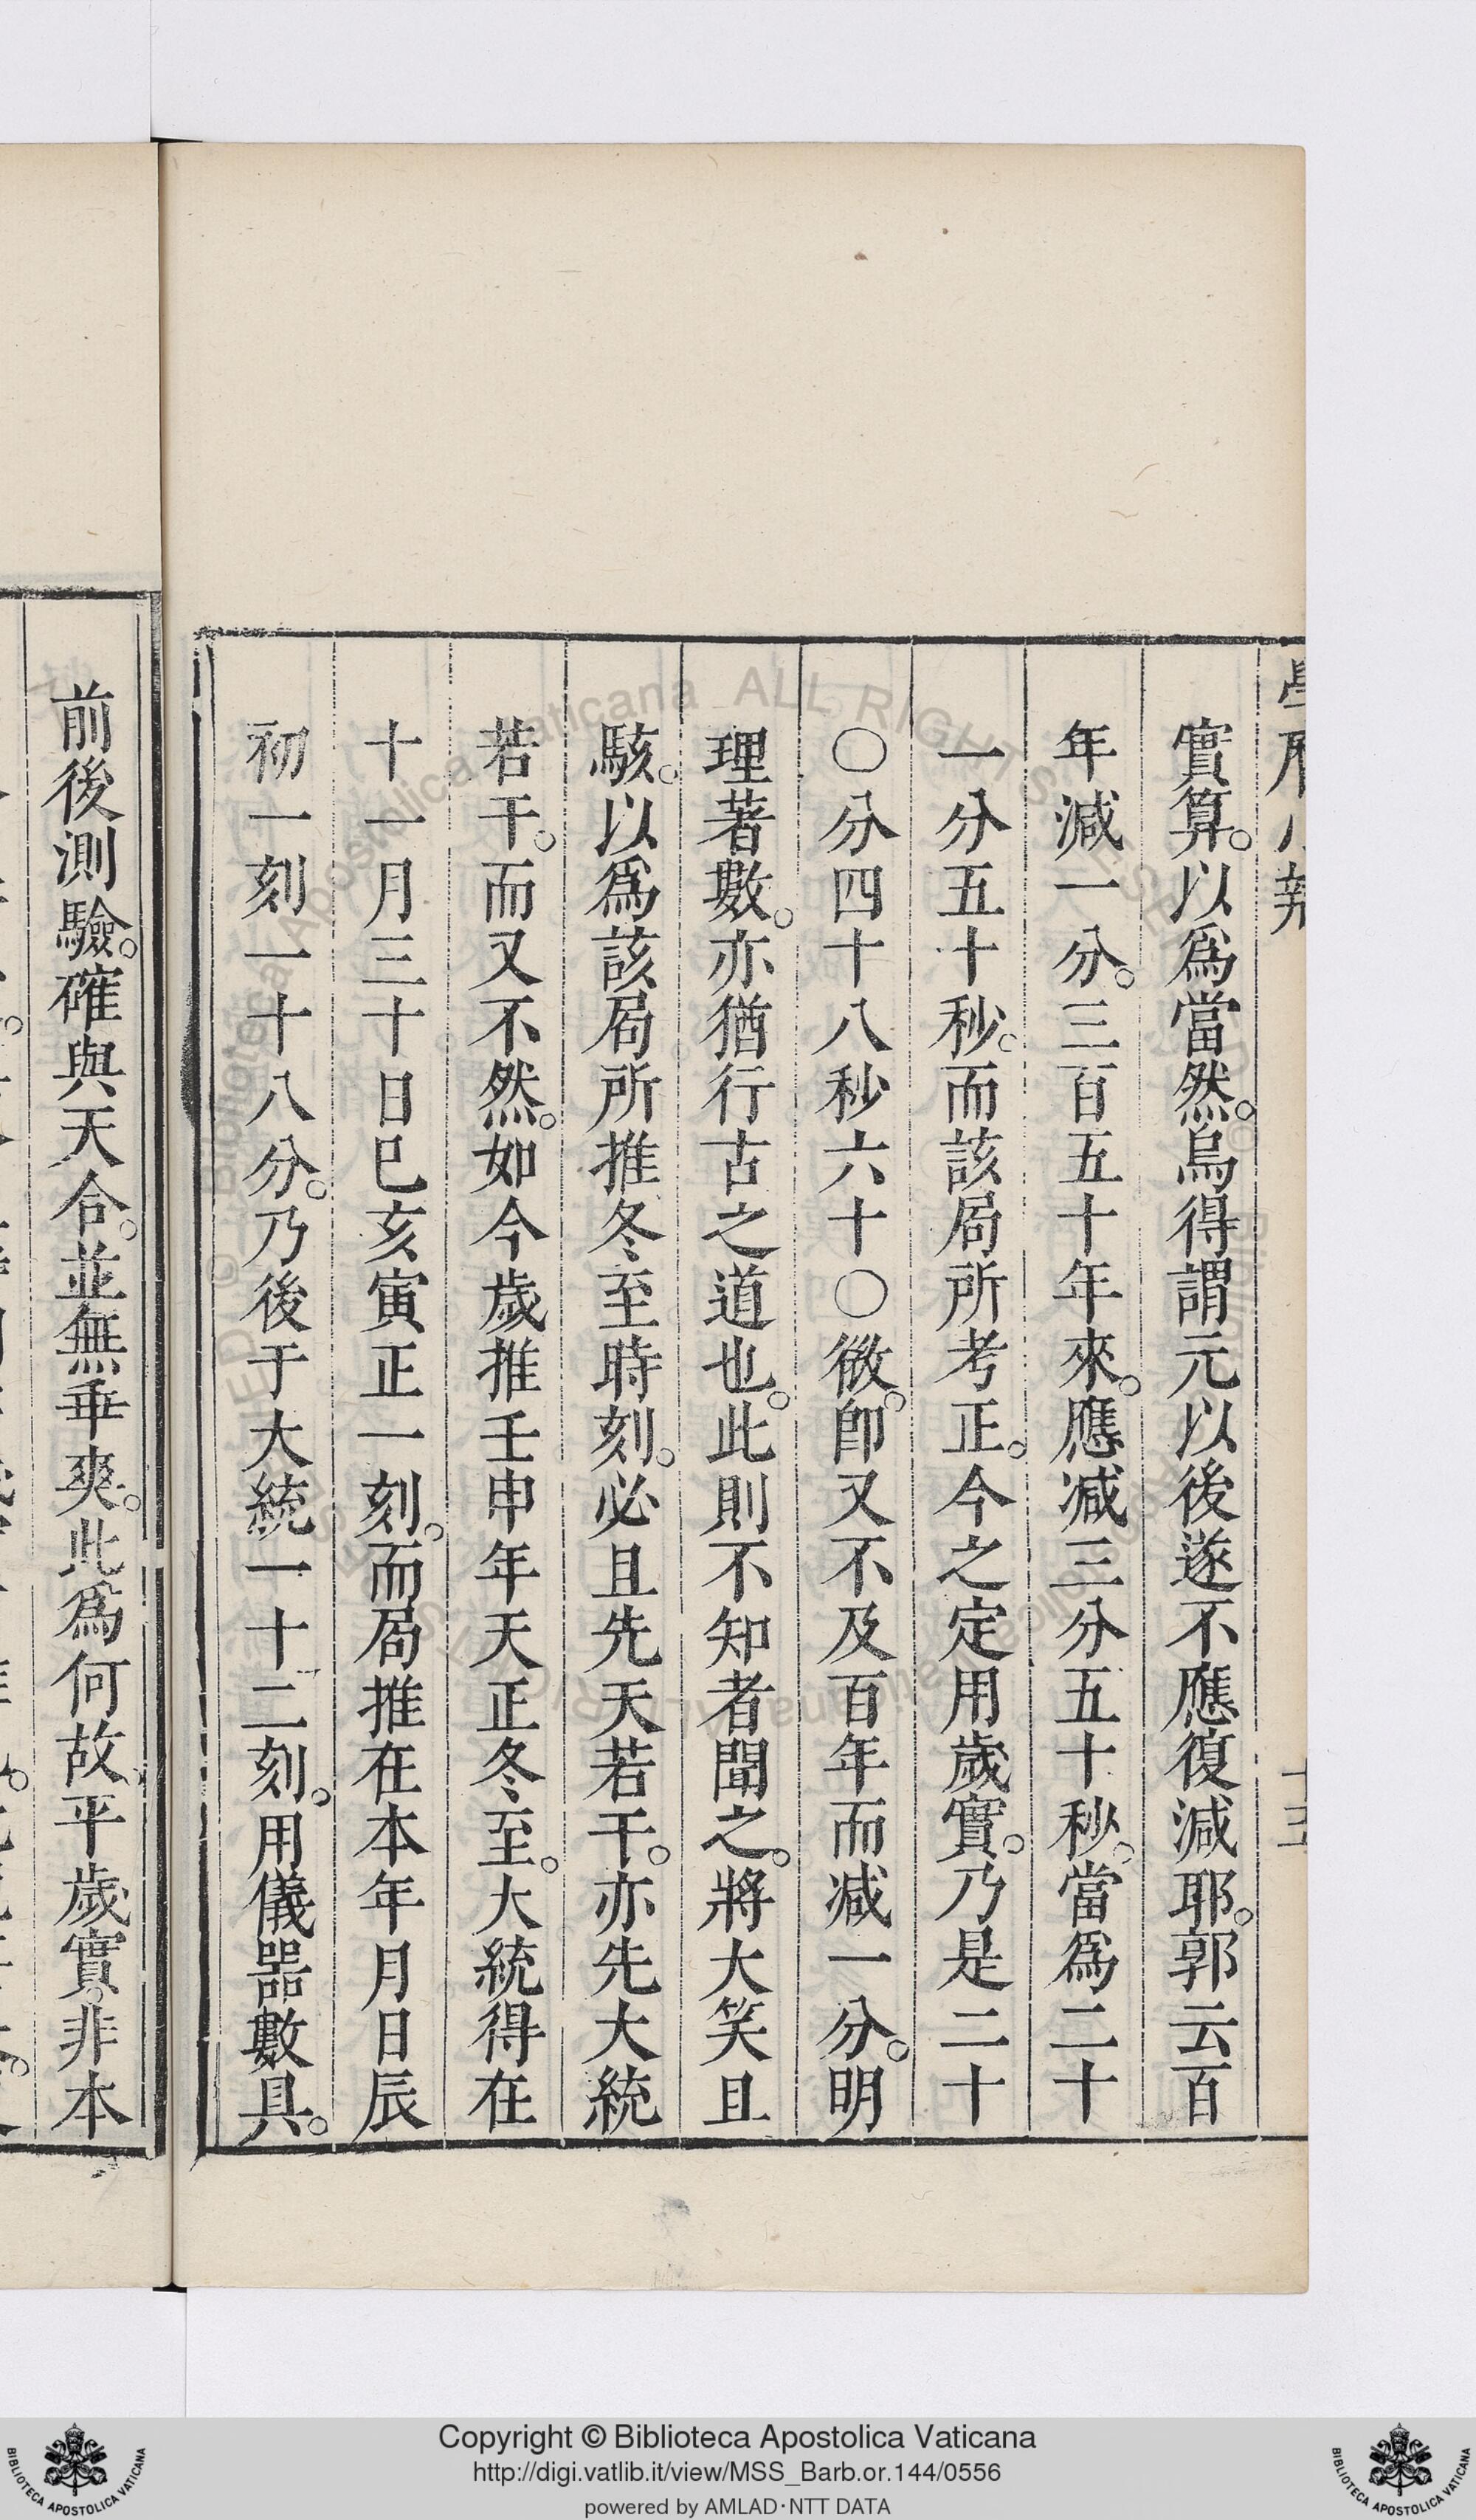 實算。以爲當然。烏得謂元以後遂不應復減耶。郭云百
年減一分。三百五十年來。應減三分五十秒。當爲二十
一分五十秒。而該局所考正。今之定用歲實。乃是二十
〇分四十八秒六十〇微。卽又不及百年而減一分。明
理著數。亦猶行古之道也。此則不知者聞之。將大笑且
駭。以爲該局所推冬至時刻。必且先天若干。亦先大統
若干。而又不然。如今歲推壬申年天正冬至。大統得在
十一月三十日巳亥寅正一刻。而局推在本年月日辰
初一刻一十八分。乃後于大統一十二刻。用儀器數具。
前後測驗。確與天合。並無乖爽。此爲何故、平歲實。非本
Copyright © Biblioteca Apostolica Vaticana
http://digi.vatlib.it/view/MSS_Barb.or.144/0556
powered by AMLAD·NTT DATA
BIBLIOTECA APOSTOLICA VATICANA
BIBLIOTECA APOSTOLICA VATICANA